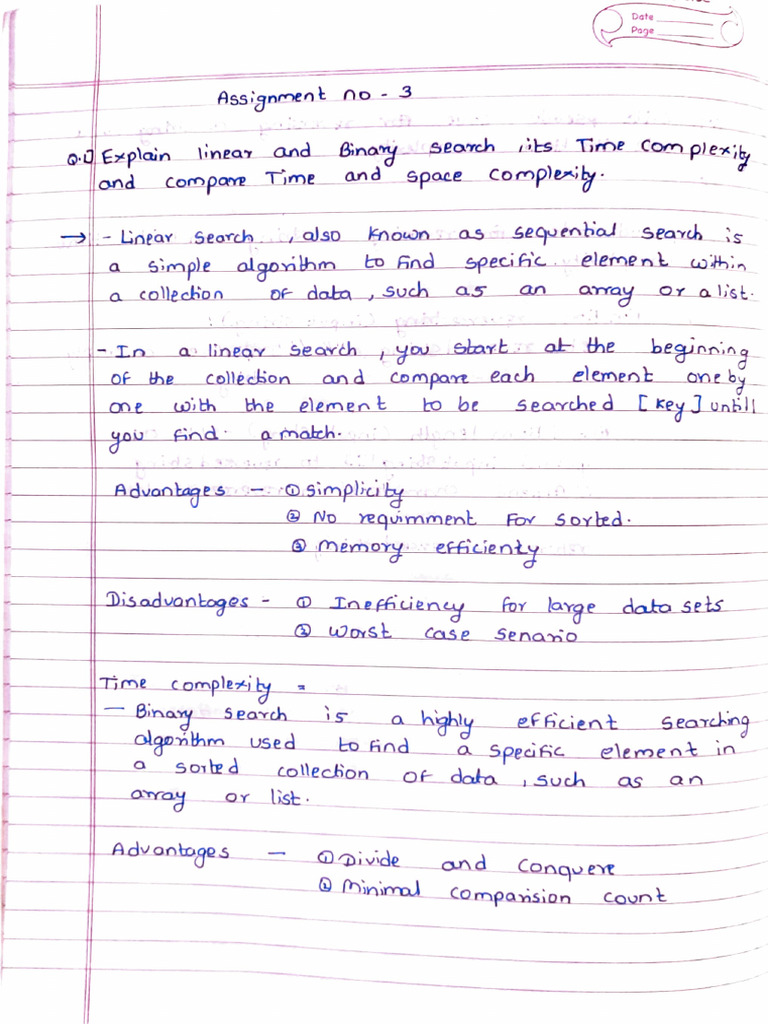 Date
Page
Assignment no - 3
Q.1] Explain linear and Binary search , its Time complexity
and compare Time and space complexity.
→ - Linear search , also known as sequential search is
a simple algorithm to find specific element within
a collection of data , such as an array or a list.
- In a linear search , you start at the beginning
of the collection and compare each element one by
one with the element to be searched [key] untill
you find a match.
Advantages - ① simplicity
② No requimment for sorted.
③ memory efficienty
Disadvantages - ① Inefficiency for large data sets
② worst case senario
Time complexity =
- Binary search is a highly efficient searching
algorithm used to find a specific element in
a sorted collection of data , such as an
array or list.
Advantages - ① Divide and conquere
② Minimal comparision count